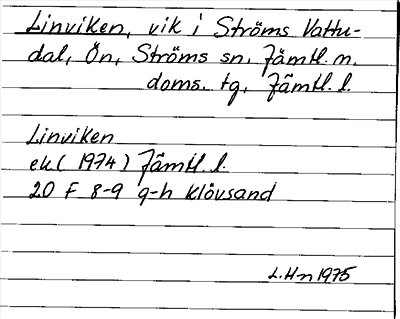 Linviken, vik i Ströms Vattu-
dal, Ön, Ströms sn, Jämtl. n.
doms. tg, Jämtl. l.
Linviken
ek ( 1974 ) Jämtl. l.
20 F 8-9 g-h Klövsand
L.Hn 1975